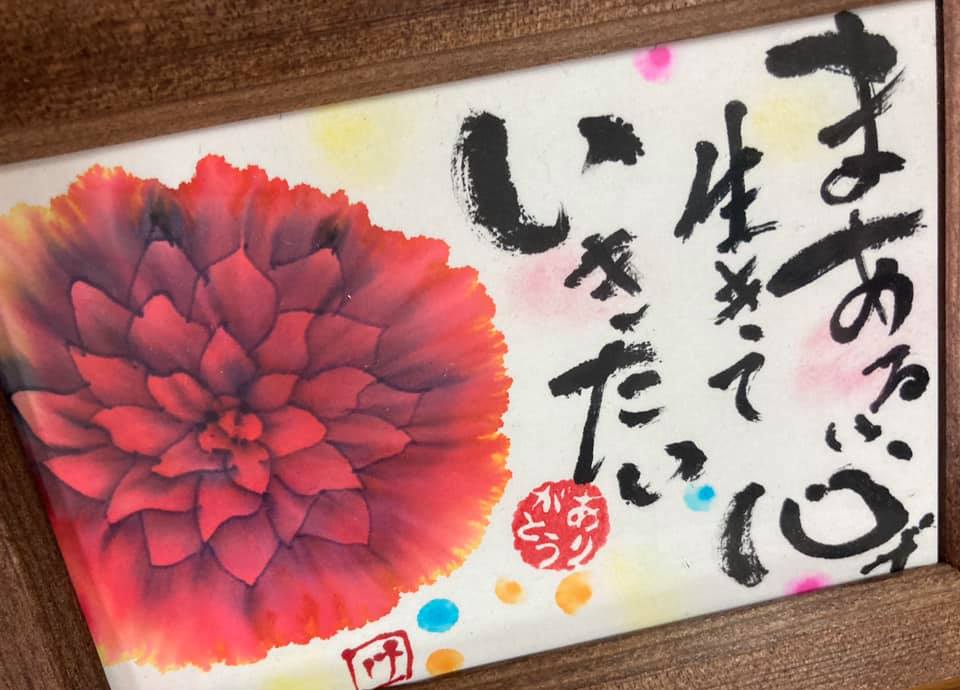 まあるい心で
生きて
いきたい
ありがとう